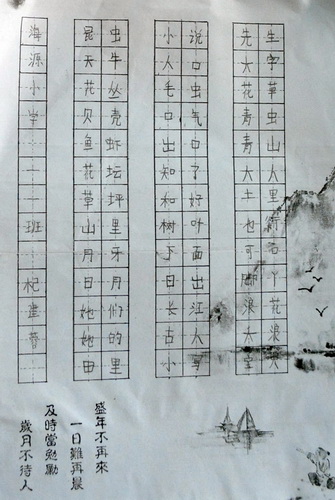 生字草虫山人里石丫花浪
先大花青青大土也可脚浪大
说口虫气口了好叶面出江大
小人毛口出知和树下日长古小
虫牛丛壳虾坛坪里牙月们的里
昆天花贝鱼花草山月日她她田
海源小学 班 杞
盛年不再來
一日難再晨
及時當勉勵
歲月不待人